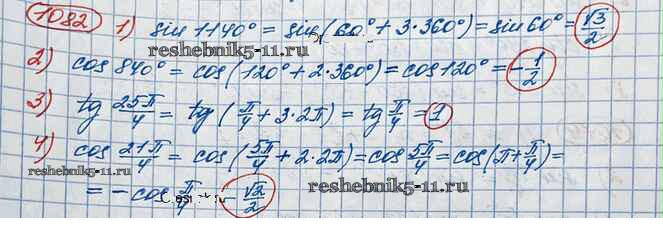 1082 1) sin 1140° = sin(60° + 3·360°) = sin 60° = √3/2
reshebnik5-11.ru
2) cos 840° = cos(120° + 2·360°) = cos 120° = -1/2
3) tg 25π/4 = tg(π/4 + 3·2π) = tg π/4 = 1
4) cos 21π/4 = cos(5π/4 + 2·2π) = cos 5π/4 = cos(π + π/4) =
reshebnik5-11.ru
= -cos π/4 = -√2/2 reshebnik5-11.ru